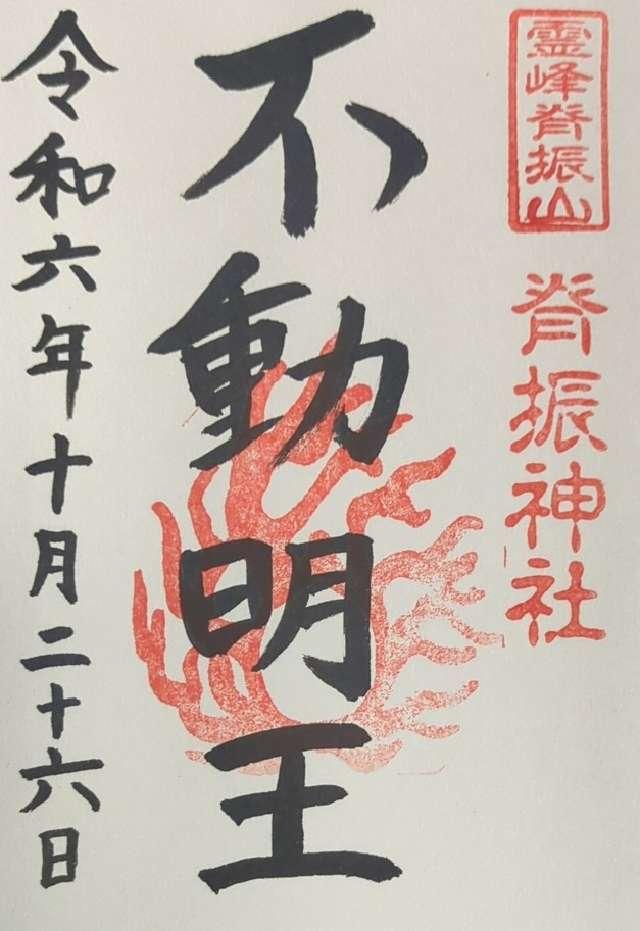 霊峰脊振山
脊振神社
不動明王
令和六年十月二十六日